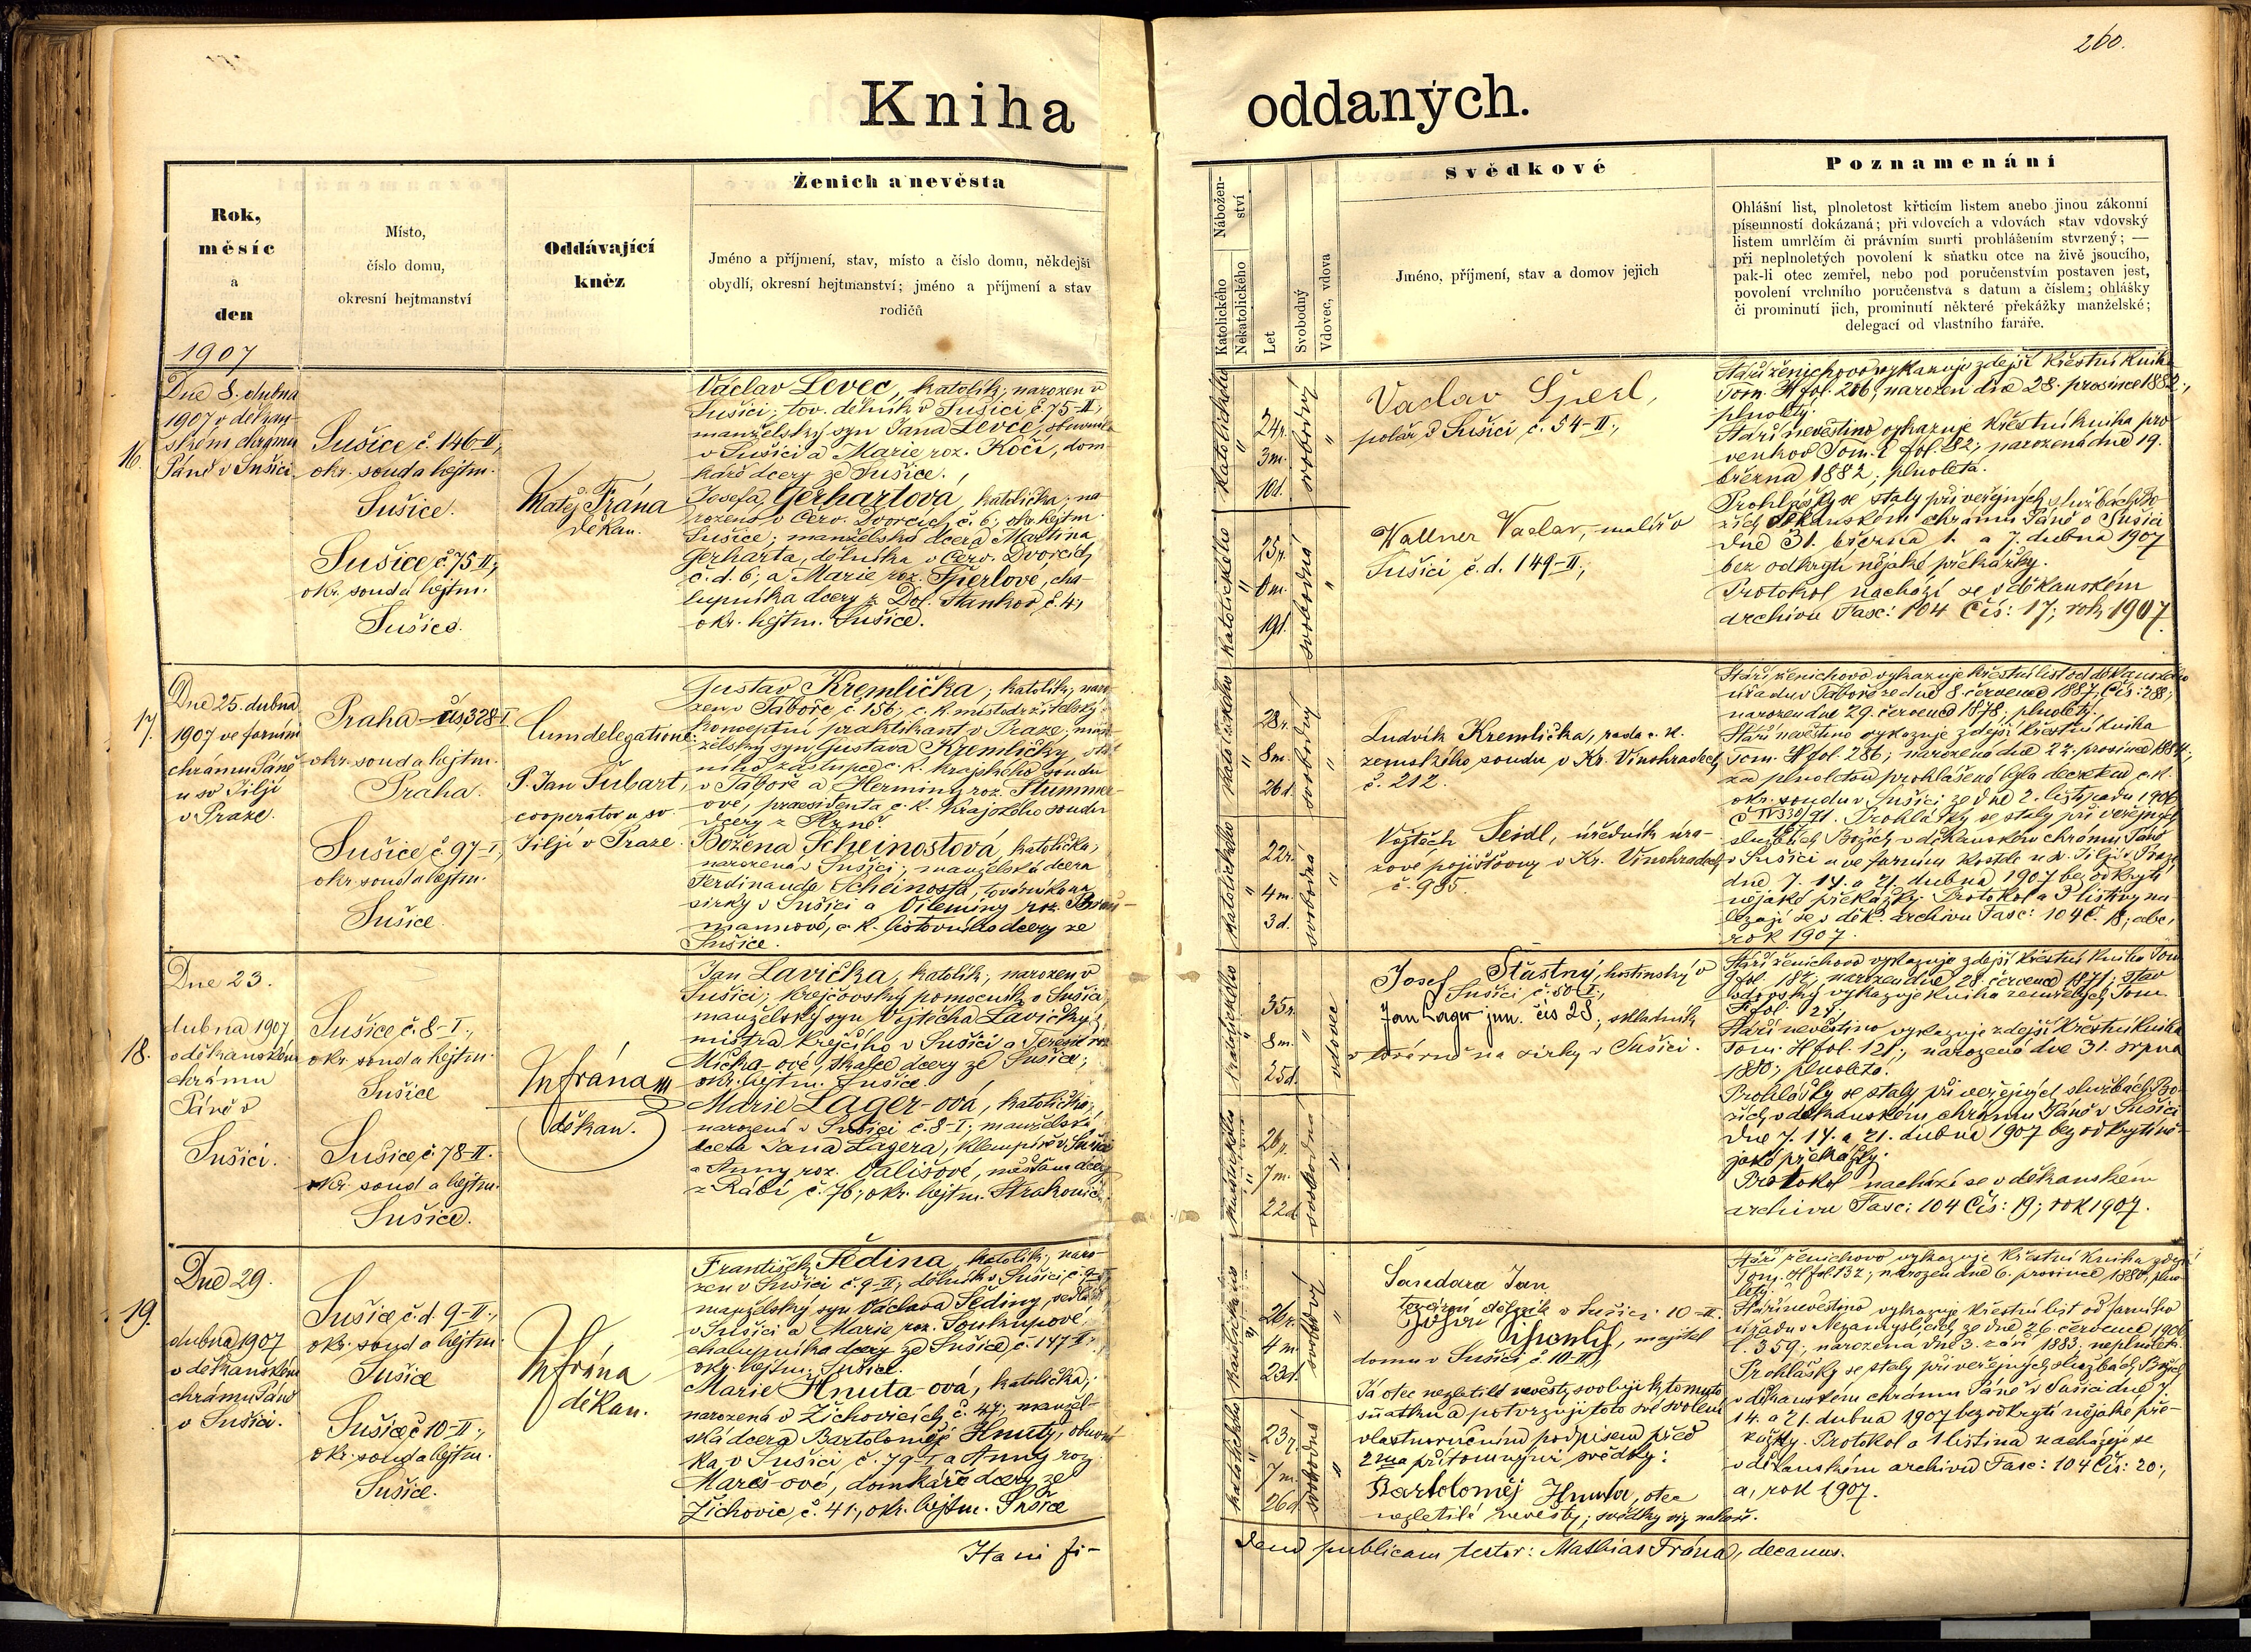 260.
Kniha oddaných.
Rok,
měsíc
a
den
Místo,
číslo domu,
okresní hejtmanství
Oddávající
kněz
Ženich a nevěsta
Jméno a příjmení, stav, místo a číslo domu, někdejší
obydlí, okresní hejtmanství; jméno a příjmení a stav
rodičů
Nábožen-
ství
Katolického
Nekatolického
Let
Svobodný
Vdovec, vdova
Svědkové
Jméno, příjmení, stav a domov jejich
Poznamenání
Ohlášní list, plnoletost křticím listem anebo jinou zákonní
písemností dokázaná; při vdovcích a vdovách stav vdovský
listem umrlčím či právním smrti prohlášením stvrzený; —
při neplnoletých povolení k sňatku otce na živě jsoucího,
pak-li otec zemřel, nebo pod poručenstvím postaven jest,
povolení vrchního poručenstva s datum a číslem; ohlášky
či prominutí jich, prominutí některé překážky manželské;
delegací od vlastního faráře.
1907
16.
Dne 8. dubna
1907 v děkan-
ském chrámu
Páně v Sušici
Sušice č. 146-II,
okr. soud a hejtm.
Sušice.
Sušice č. 75-II,
okr. soud a hejtm.
Sušice.
Matěj Frána
děkan.
Václav Levec, katolík, narozen v
Sušici; tov. dělník v Sušici č. 75-II,
manželský syn Jana Levce, obuvníka
v Sušici a Marie roz. Kočí, dom
káře dcery ze Sušice.
Josefa Gerhartova, katolička, na
rozená v Červ. Dvorcích č. 6; okr. hejtm.
Sušice; manželská dcera Martina
Gerharta, dělníka v Červ. Dvorcích
č. d. 6; a Marie roz. Šperlové, cha
lupníka dcery z Dol. Stankov č. 4;
okr. hejtm. Sušice.
katolického
"
24r.
3m.
10d.
svobodný
"
katolického
"
25r.
0m.
19d.
svobodná
"
Vaclav Šperl,
polař v Sušici č. 54-II;
Wallner Vaclav, malíř v
Sušici č. d. 149-II;
Stáří ženichovo vykazuje zdejší křestní kniha
Tom. H fol. 206; narozen dne 28. prosince 1882;
plnoletý.
Stáří nevěstino vykazuje křestní kniha pro
venkov Tom. I fol. 82; narozená dne 19.
března 1882; plnoletá.
Prohlášky se staly při veřejných službách Bo
žích v děkanském chrámu Páně v Sušici
dne 31. března 1. a 7. dubna 1907
bez odkrytí nějaké překážky.
Protokol nachází se v děkanském
archivu Fasc: 104 Čís: 17; rok 1907.
17.
Dne 25. dubna
1907 ve farním
chrámu Páně
u sv. Jiljí
v Praze.
Praha čís. 328-I
okr. soud a hejtm.
Praha.
Sušice č. 97-I,
okr. soud a hejtm.
Sušice.
Cum delegatione:
P. Jan Šubart,
cooperator u sv.
Jiljí v Praze.
Gustav Kremlička; katolík; naro
zen v Táboře č. 156; c. k. místodržitelský
konceptní praktikant v Praze; man
želský syn Gustava Kremličky, stát
ního zástupce c. k. krajského soudu
v Táboře a Herminy roz. Stummer
ové, praesidenta c. k. krajského soudu
dcery z Plzně.
Božena Scheinostová, katolička,
narozená v Sušici, manželská dcera
Ferdinanda Scheinosta, továrníka na
sirky v Sušici a Vilemíny roz.
mannové, c. k. listovního dcery ze
Sušice.
katolického
"
28r.
8m.
26d.
svobodný
"
katolického
"
22r.
4m.
3d.
svobodná
"
Ludvík Kremlička, rada c. k.
zemského soudu v Kr. Vinohradech
č. 212.
Vojtěch Seidl, úředník úra-
zové pojišťovny v Kr. Vinohradech
č. 985.
Stáří ženichovo vykazuje křestní list od děkanského
úřadu v Táboře ze dne 8. července 1887, Čís: 288;
narozen dne 29. července 1878; plnoletý.
Stáří nevěstino vykazuje zdejší křestní kniha
Tom. H fol. 286; narozená dne 22. prosince 1884;
za plnoletou prohlášena byla decretem c. k.
okr. soudu v Sušici ze dne 2. listopadu 1906
Prohlášky se staly při veřejných
službách Božích v děkanském chrámu Páně
v Sušici a ve farním kostele u sv. Jiljí v Praze
dne 7. 14. a 21. dubna 1907 bez odkrytí
nějaké překážky. Protokol a 3 listiny na
lezají se v děk. archivu Fasc: 104 č. 18; abc,
rok 1907.
18.
Dne 23.
dubna 1907
v děkanském
chrámu
Páně v
Sušici.
Sušice č. 8-I.,
okr. soud a hejtm.
Sušice
Sušice č. 78-II.
okr. soud a hejtm.
Sušice.
MFrána
děkan.
Jan Lavička, katolík, narozen v
Sušici; krejčovský pomocník v Sušici
manželský syn Vojtěcha Lavičky,
mistra krejčího v Sušici a Teresie roz
Mička-ové, skalce dcery ze Sušice;
okr. hejtm. Sušice.
Marie Lager-ová, katolička,
narozená v Sušici č. 8-I; manželská
dcera Jana Lagera, klempíře v Sušici
a Anny roz. Vališové, měšťana dcery
z Rábí č. 76; okr. hejtm. Strakonice.
katolického
"
35r.
8m.
25d.
vdovec
katolického
"
26r.
7m.
22d.
svobodná
"
Josef Šťastný, hostinský v
Sušici č. 50-I;
Jan Lager jun. čís 28; skladník
v továrně na sirky v Sušici.
Stáří ženichovo vykazuje zdejší křestní kniha Tom
G fol. 182; narozen dne 28. července 1871; stav
vdovský vykazuje kniha zemřelých Tom.
F fol. 24;
Stáří nevěstino vykazuje zdejší křestní kniha
Tom. H fol. 121; narozená dne 31. srpna
1880; plnoletá.
Prohlášky se staly při veřejných službách Bo-
žích v děkanském chrámu Páně v Sušici
dne 7. 14. a 21. dubna 1907 bez odkrytí ně-
jaké překážky.
Protokol nachází se v děkanském
archivu Fasc: 104 Čís: 19; rok 1907.
19.
Dne 29.
dubna 1907
v děkanském
chrámu Páně
v Sušici.
Sušice č. d. 9-II.,
okr. soud a hejtm.
Sušice
Sušice č 10-II.,
okr. soud a hejtm.
Sušice.
MFrána
děkan.
František Šedina, katolík; naro-
zen v Sušici č. 9-II; dělník v Sušici č. 9-II
manželský syn Václava Šediny, sedláka
v Sušici a Marie roz. Soukupové,
chalupníka dcery ze Sušice č. 147-II;
okr. hejtm. Sušice.
Marie Hnuta-ová, katolička,
narozená v Žichovicích č. 47; manžel-
ská dcera Bartoloměje Hnuty, obuvní
ka v Sušici č. 79-I a Anny roz.
Mareš-ové, domkáře dcery ze
Žichovic č. 41; okr. hejtm. Sušice
katolického
"
26r.
4m.
23d.
svobodný
"
katolického
"
23r.
7m.
26d.
svobodná
"
Jan
tovární dělník v Sušici 10-II.
majitel
domu v Sušici č. 10-II;
Já otec nezletilé nevěsty svoluji k tomuto
sňatku a potvrzuji toto své svolení
vlastnoručním podpisem před
2ma přítomnými svědky:
Bartoloměj Hnuta, otec
nezletilé nevěsty; svědky viz nahoře.
Stáří ženichovo vykazuje křestní kniha zdejší
Tom. H fol. 132; narozen dne 6. prosince 1880; plno
letý.
Stáří nevěstino vykazuje křestní list od farního
úřadu v Nezamyslicích, ze dne 26. července 1906
č. 359; narozena dne 3. září 1883; neplnoletá.
Prohlášky se staly při veřejných službách Božích
v děkanském chrámu Páně v Sušici dne 7.
14. a 21. dubna 1907 bez odkrytí nějaké pře-
kážky. Protokol a 1 listina nacházejí se
v děkanském archivu Fasc: 104 Čís: 20;
a, rok 1907.
Ita in fi-
dem publicam testor: Mathias Frána, decanus.